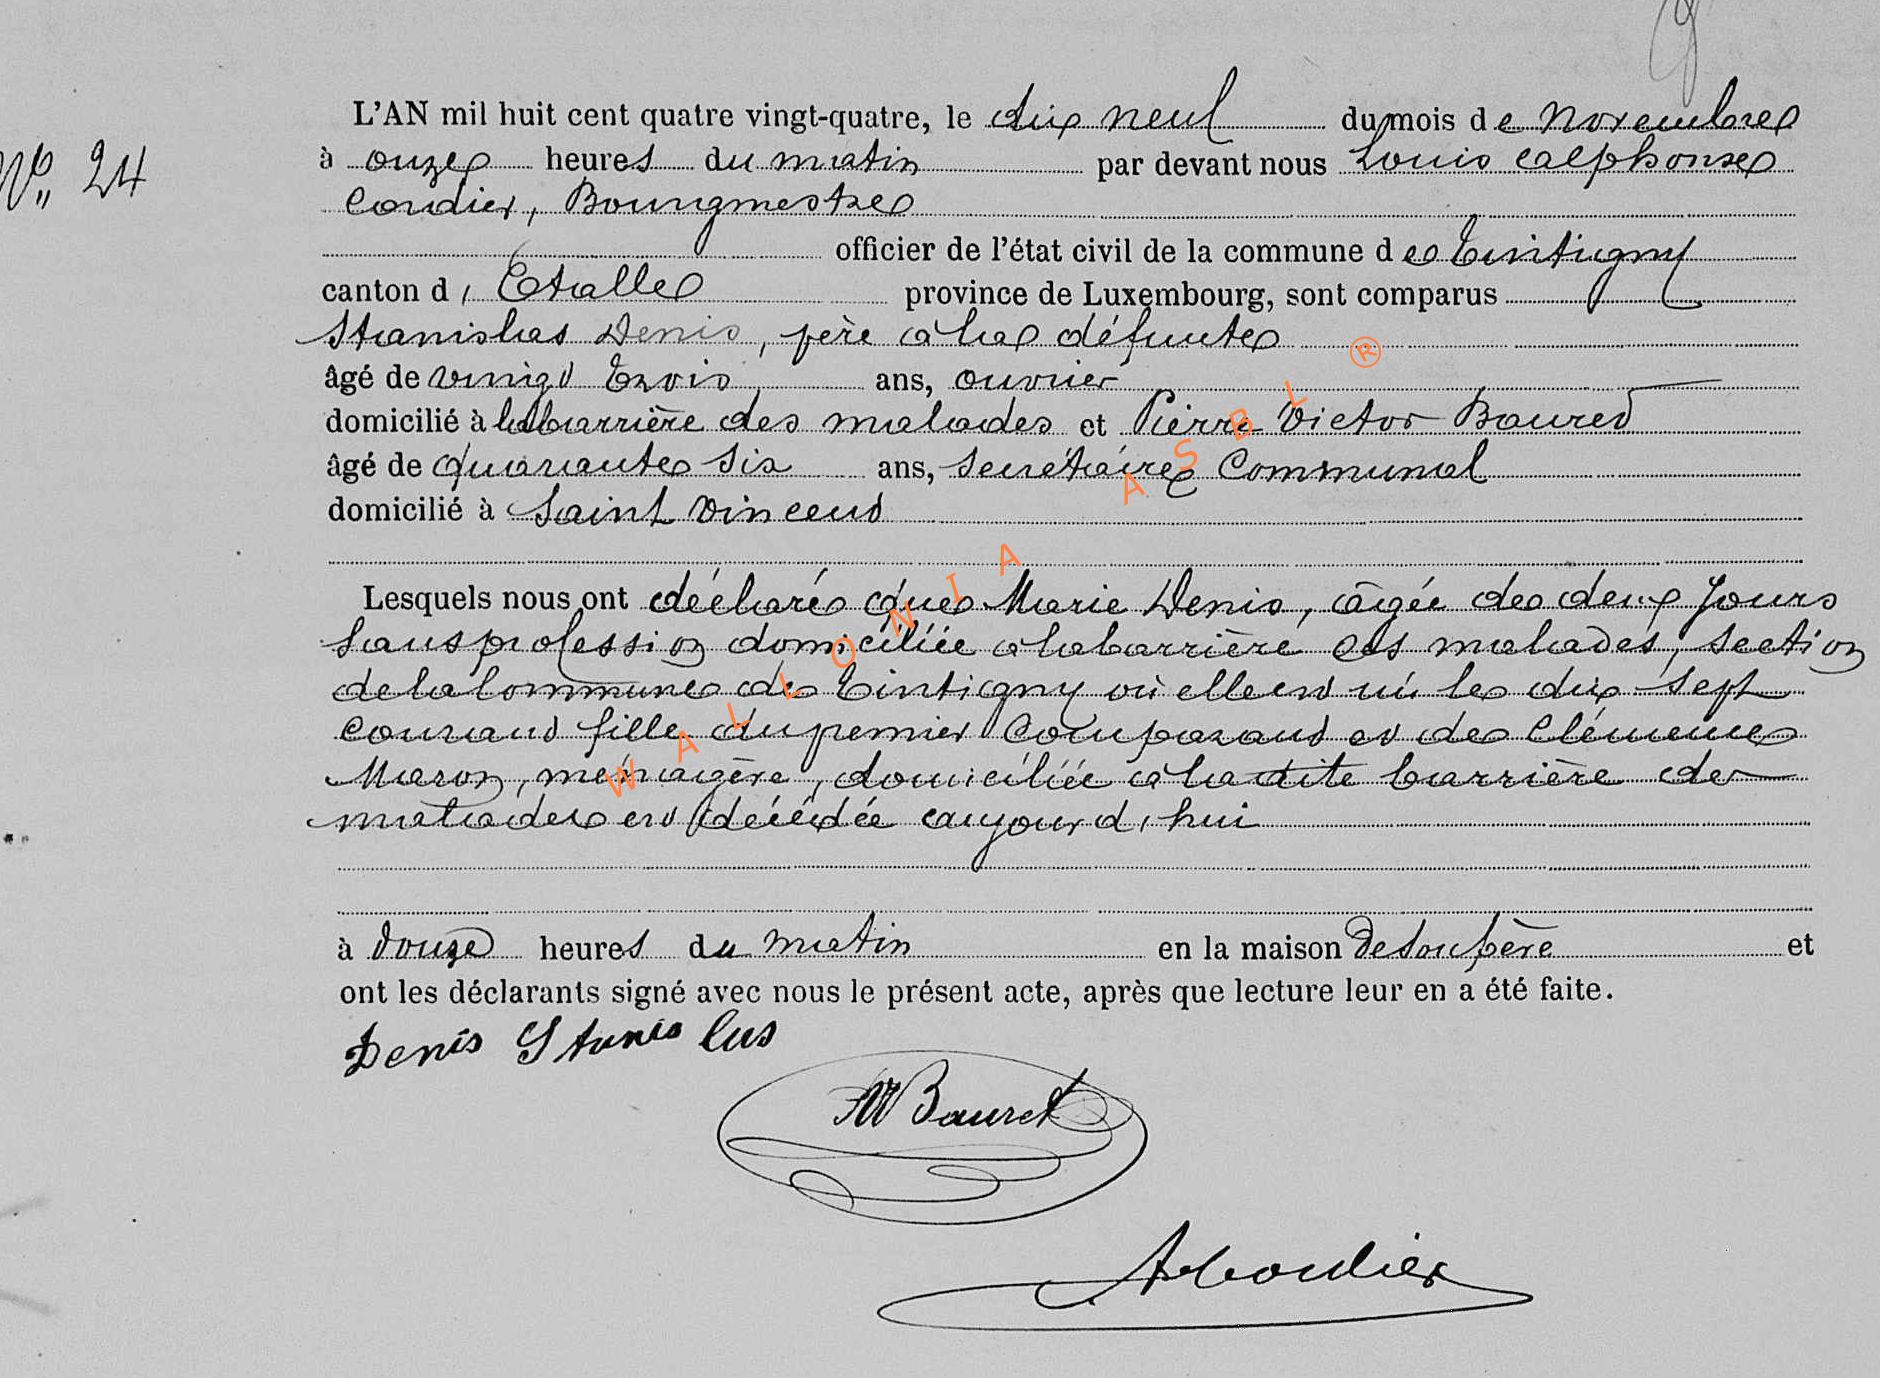 L'AN mil huit cent quatre vingt-quatre, le dix neuf du mois de Novembre
N° 24 à onze heures du matin par devant nous Louis Alphonse
Cordier, Bourgmestre
officier de l'état civil de la commune de Tintigny
canton d'Etalle province de Luxembourg, sont comparus
Stanislas Denis, père à la défunte
âgé de vingt trois ans, ouvrier
domicilié à labarrière des malades et Pierre Victor Bauret
âgé de quarante six ans, secrétaire Communal
domicilié à Saint Vincent
Lesquels nous ont déclaré que Marie Denis, âgée de deux jours
sans profession domiciliée à labarrière des malades, section
de la Commune de Tintigny où elle est née le dix sept
courant fille du premier Comparant et de Clémence
Maron, ménagère, domiciliée à ladite barrière des
malades est décédée aujourd'hui
à douze heures du matin en la maison de son père et
ont les déclarants signé avec nous le présent acte, après que lecture leur en a été faite.
Denis Stanislas
Bauret
A Cordier
WALLONIA ASBL ®